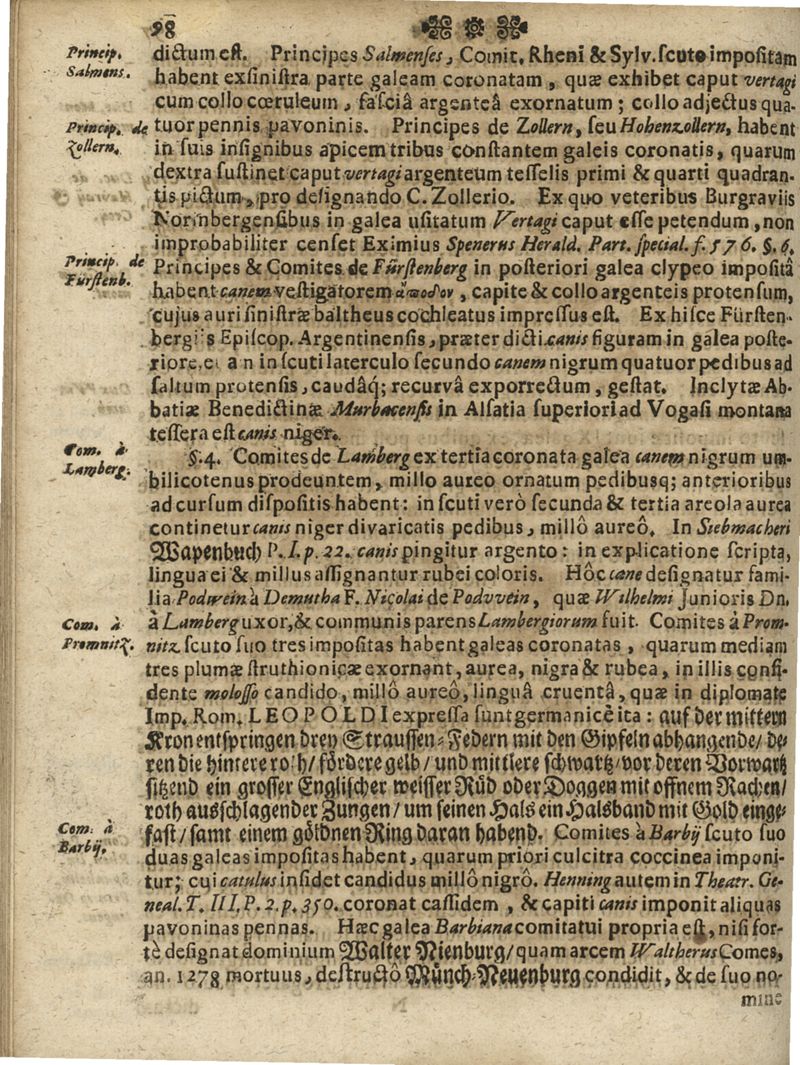 98
Princip.
Salmens.
dictum est. Principes Salmenses, Comit. Rheni & Sylv. scuto impositam
habent ex sinistra parte galeam coronatam, quæ exhibet caput vertagi
cum collo cœruleum, fasciâ argenteâ exornatum; collo adjectus qua-
Princip. de
Zollern.
tuor pennis pavoninis. Principes de Zollern, seu Hohenzollern, habent
in suis insignibus apicem tribus constantem galeis coronatis, quarum
dextra sustinet caput vertagi argenteum tesselis primi & quarti quadran-
tis pictum, pro designando C. Zollerio. Ex quo veteribus Burgraviis
Norinbergensibus in galea usitatum Vertagi caput esse petendum, non
improbabiliter censet Eximius Spenerus Herald. Part. special. f. 576. §. 6.
Princip. de
Fürstenb.
Principes & Comites de Fürstenberg in posteriori galea clypeo impositâ
habent canem vestigatorem ἄποδον, capite & collo argenteis protensum,
cujus auri sinistræ baltheus cochleatus impressus est. Ex hisce Fürsten-
bergiis Episcop. Argentinensis, præter dicti canis figuram in galea poste-
riore, in scuti laterculo secundo canem nigrum quatuor pedibus ad
saltum protensis, caudâq; recurvâ exporrectum, gestat. Inclytæ Ab-
batiæ Benedictinæ Murbacensis in Alsatia superiori ad Vogasi montana
tessera est canis niger.
Com. à
Lamberg.
§. 4. Comites de Lamberg ex tertia coronata galea canem nigrum um-
bilicotenus prodeuntem, millo aureo ornatum pedibusq; anterioribus
ad cursum dispositis habent: in scuti verò secunda & tertia areola aurea
continetur canis niger divaricatis pedibus, millô aureô. In Siebmacheri
Wapenbuch P. I. p. 22. canis pingitur argento: in explicatione scripta,
lingua ei & millus assignantur rubei coloris. Hôc cane designatur fami-
lia Podwein à Demutha F. Nicolai de Podvvein, quæ Wilhelmi Junioris Dn.
à Lamberg uxor, & communis parens Lambergiorum fuit. Comites à Prom-
Com. à
Promnitz.
nitz scuto suo tres impositas habent galeas coronatas, quarum mediam
tres plumæ struthionicæ exornant, aurea, nigra & rubea, in illis consi-
dente molosso candido, millô aureô, linguâ cruentâ, quæ in diplomate
Imp. Rom. LEOPOLDI expressa sunt germanicè ita: auf der mittern
Kron entspringen drey Straussen-Federn mit den Gipfeln abhangende/ de-
ren die hintere roth/ fördere gelb/ und mittlere schwartz/ vor deren Vorwartz
sitzend ein grosser Englischer weisser Rüd oder Doggen mit offnem Rachen/
roth ausschlagender Zungen/ um seinen Hals ein Halsband mit Gold einge-
Com. à
Barbij.
fast/ samt einem göldnen Ring daran habend. Comites à Barbij scuto suo
duas galeas impositas habent, quarum priori culcitra coccinea imponi-
tur; cui catulus insidet candidus millô nigrô. Henning autem in Theatr. Ge-
neal. T. III, P. 2. p. 350. coronat cassidem, & capiti canis imponit aliquas
pavoninas pennas. Hæc galea Barbiana comitatui propria est, nisi for-
tè designat dominium Walter Nienburg/ quam arcem Waltherus Comes,
an. 1278 mortuus, destructô Münch-Neuenburg condidit, & de suo no-
mine